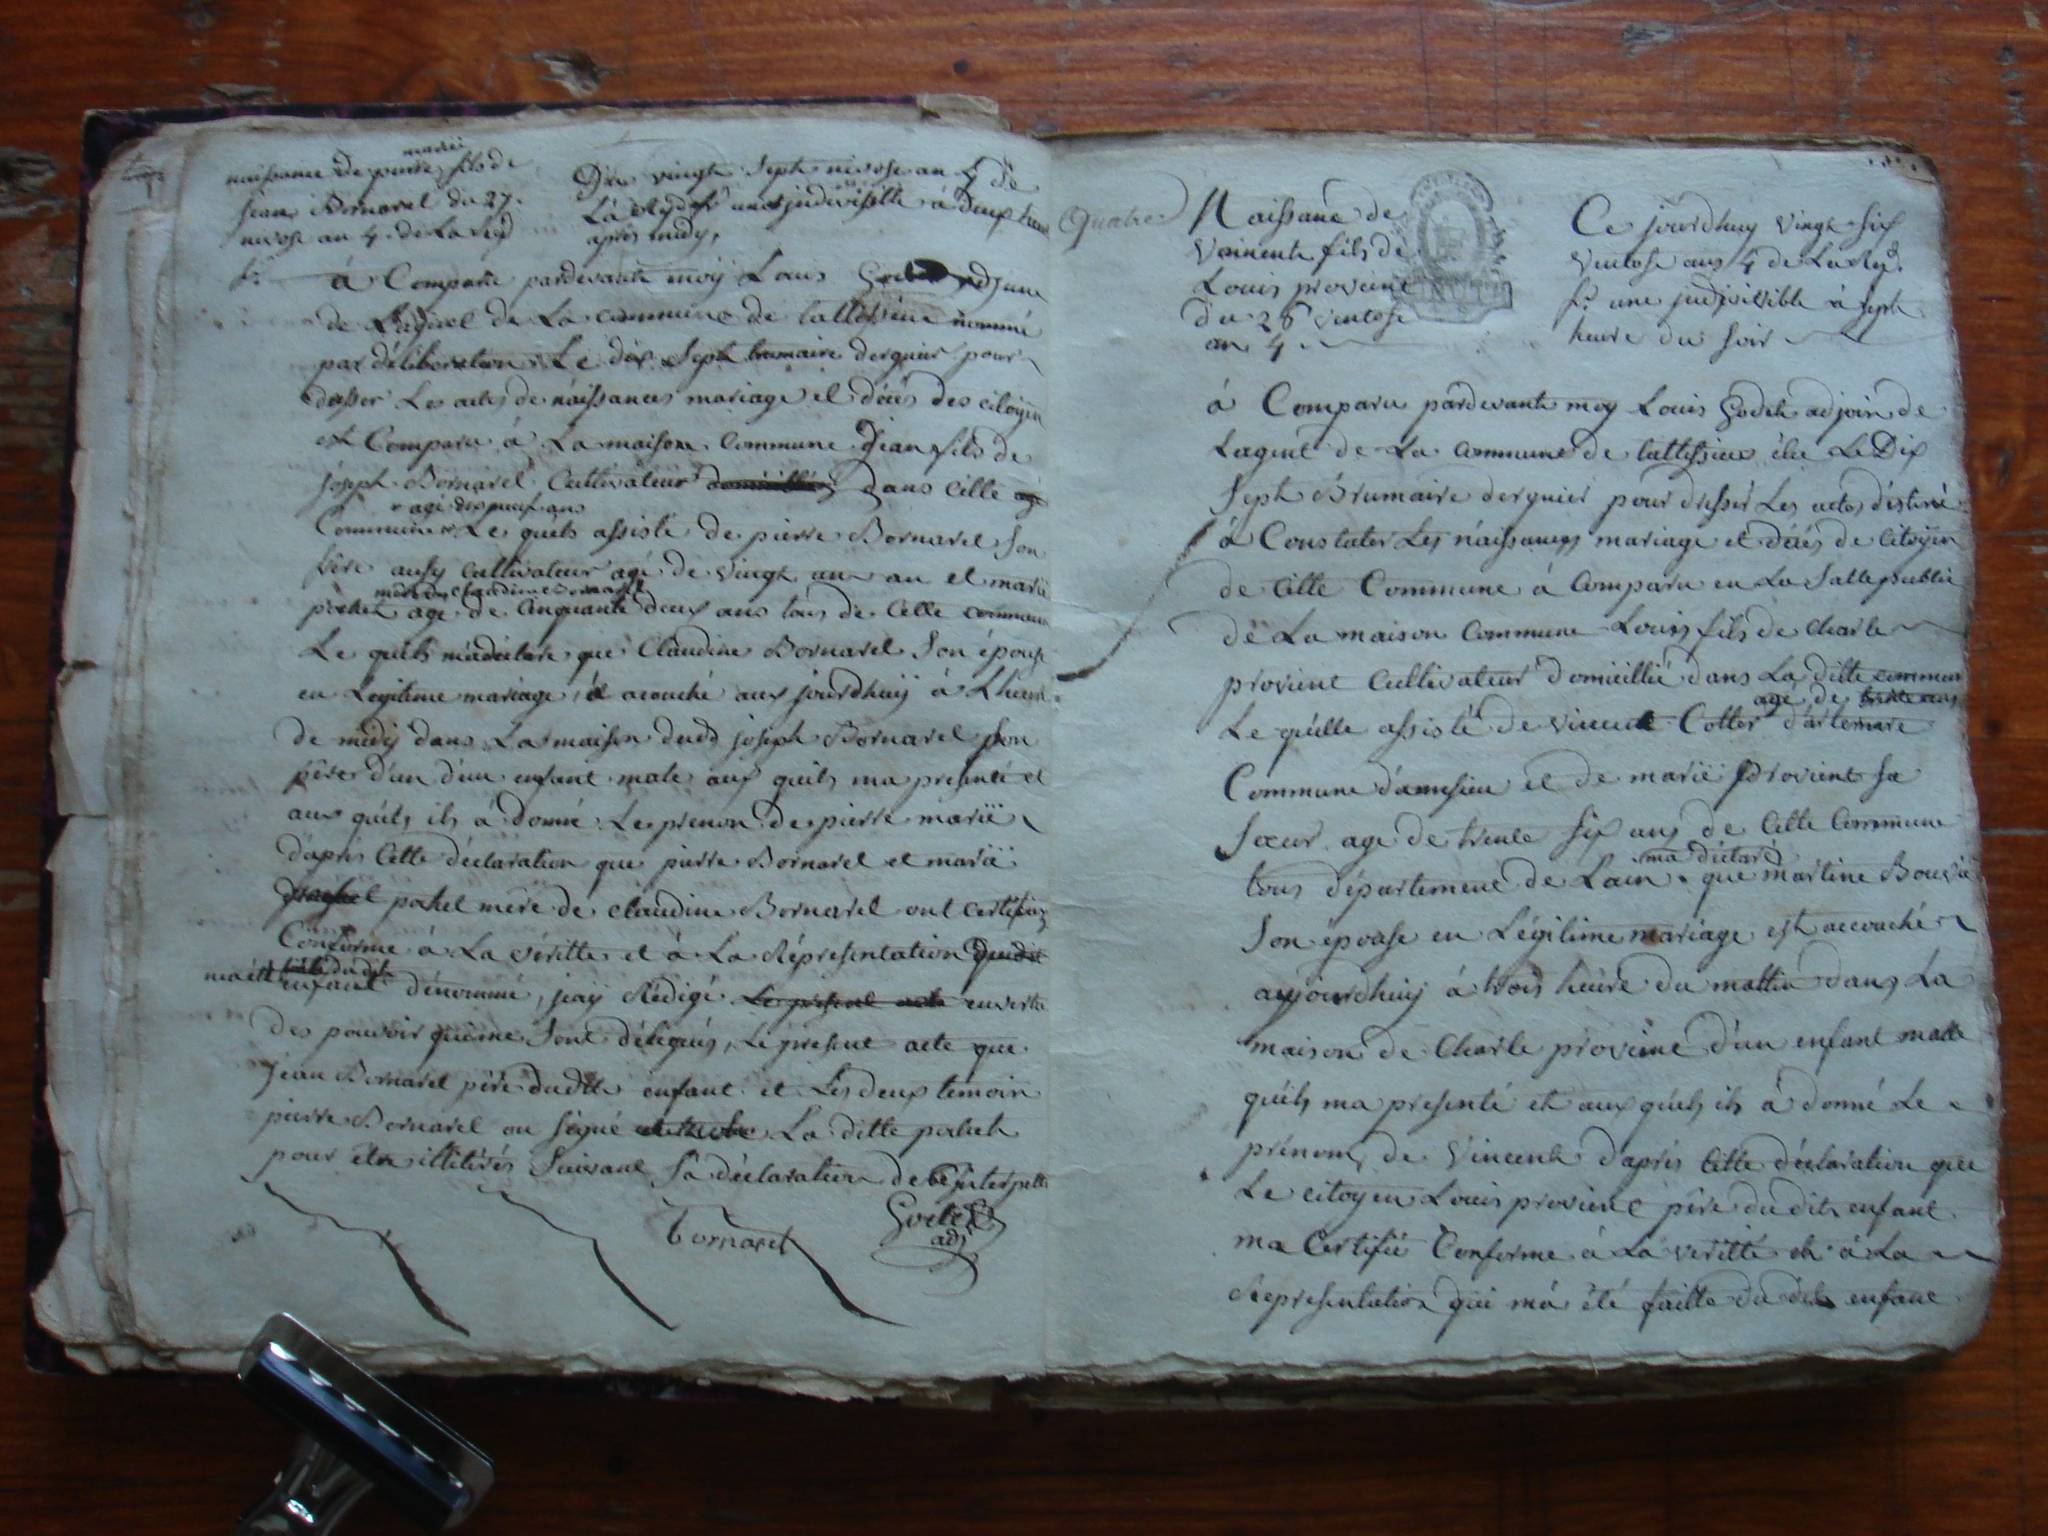 mariė
naissance de pierre fils de
jean Bornarel du 27.
nivose an 4. de La rep
fr.
Du vingt Sept nivose an 4 de
La Rep fr une indivisible à deux heure
après midy,
à Comparu pardevant moy Louis Godet adjoint
de L'agent de La commune de nommé
par déliberation Le dix Sept brumaire dernier pour
dresser Les actes de naissances mariage et décés des citoyen
est Comparu à La maison commune Jean fils de
joseph Bornarel Cultivateur domicillié dans cette agé
agé dix neuf ans
Commune Le quels assisté de pierre Bornarel Son
frère aussy cultivateur agé de vingt un an et marie
mère de claudine Bornarel
pochet age de Cinquante deux ans tous de Cette commune
Le quels m'a déclaré que Claudine Bornarel Son épouse
en Legitime mariage, est acouché aux jourdhuy à Lheure
de midy dans La maison dudt joseph Bornarel Son
père d'un d'un enfant male aux quels ma presenté et
aux quels ils à donné Le prenom de pierre marie
d'apris Cette déclaration que pierre Bornarel et marie
pochet mère de claudine Bornarel ont certifiez
Conforme à La véritté et à La Répresentation qui
m'a été faitte du dit
enfant dénommé, jeay Rédigé Le present acte en vertu
des pouvoir qui me Sont déléqués, Le present acte que
jean Bornarel père dudtt enfant et Les deux temoin
pierre Bornarel on Signé La ditte pochet
pour être illitérés Suivant Sa déclaration de ce interpellé
Bornarel
Godet
adj
Quatre
Naissance de
Vaincent fils de
Louis provient
du 26 ventose
an 4
Ce jourdhuy vingt six
ventose ans 4 de La Rep.
fr. une indivisible à sept
heure du soir
à Comparu pardevant moy Louis Godet adjoin de
Lagent de La commune de élu Le Dix
Sept Brumaire dernier pour dresser Les actes destiné
à Constater Les naissances mariage et décés de citoyen
de Cette Commune à Comparu en La Salle public
de La maison commune Louis fils de charle
provient cultivateur domicillié dans La ditte commune
agé de trente ans
Le quelle assisté de vincent Cotter d'artemare
Commune d'ameysieu et de marie provient Sa
Sœur age de trente Six ans de Cette Commune
ma déclaré
tous département de Lain que martine Bouvier
Son epouse en Légitime mariage est accouché
aujourdhuy à trois heure du mattin dans La
maison de Charle provient d'un enfant malle
quels ma presenté et aux quels ils à donné Le
prénom de Vincent d'apris cette déclaration que
Le citoyen Louis provient père du dit enfant
ma Certifié Conforme à La veritté et à La
Representation qui m'a été faitte du dit enfant